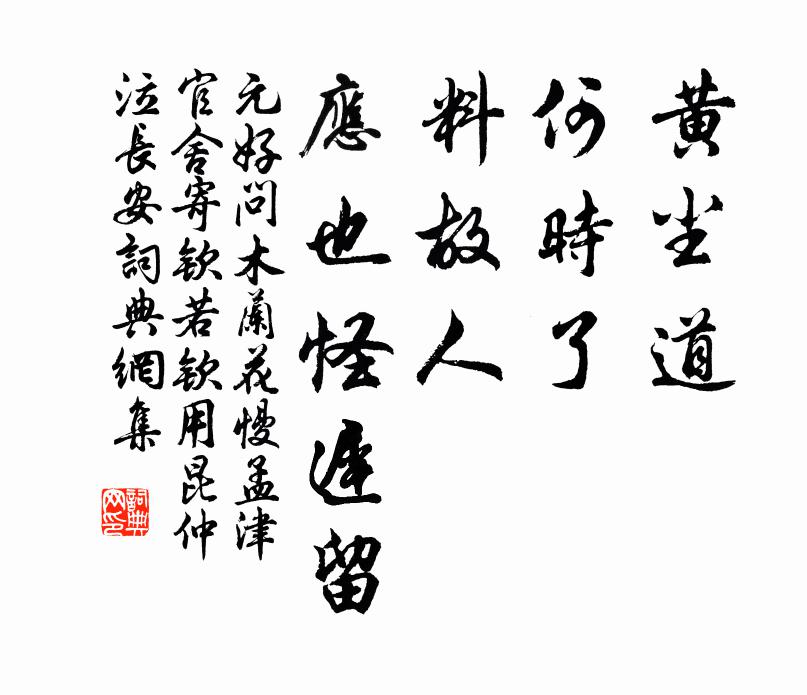 黃尘道
何時了
料故人
應也怪遲留
元好問木蘭花慢孟津
官舍寄欽若欽用昆仲
泣長安詞典網集
詞典
网印